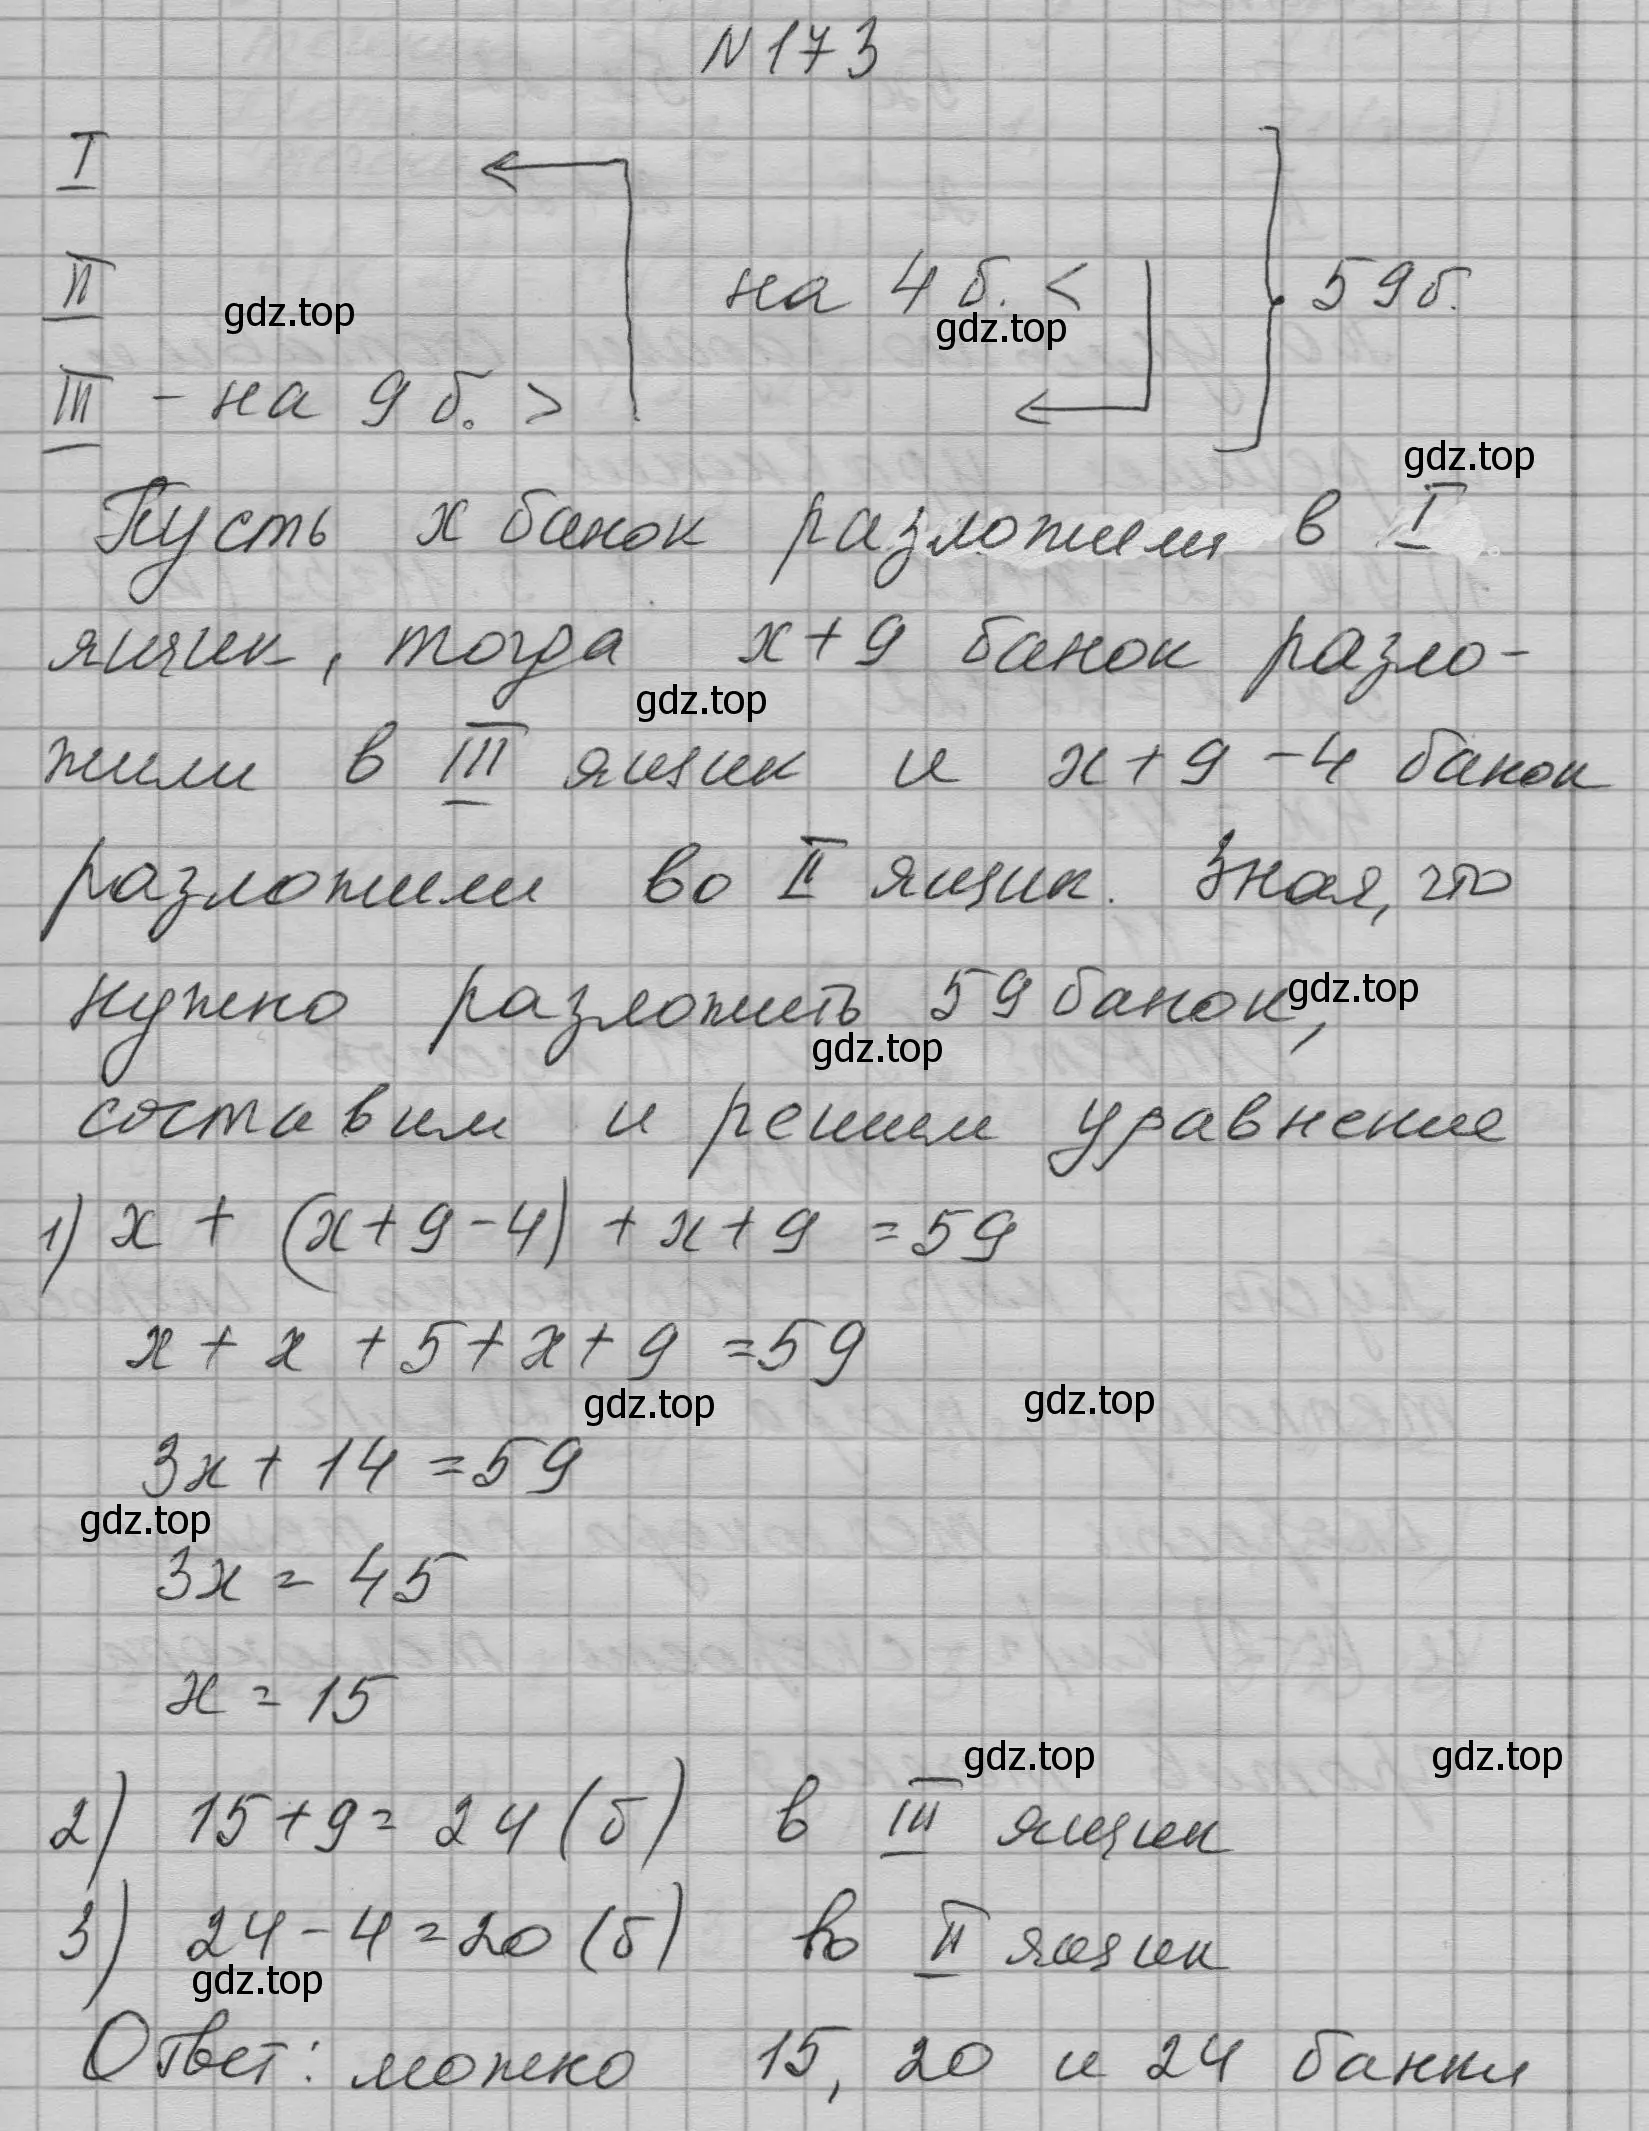 N 173
I
II на 4 б. < 59 б.
III - на 9 б. >
Пусть x банок разложили в I
ящик, тогда x+9 банок разло-
жили в III ящик и x+9-4 банок
разложили во II ящик. Зная, что
нужно разложить 59 банок,
составим и решим уравнение
1) x + (x+9-4) + x+9 = 59
x + x + 5 + x + 9 = 59
3x + 14 = 59
3x = 45
x = 15
2) 15+9=24 (б) в III ящик
3) 24-4=20 (б) во II ящик
Ответ: можно 15, 20 и 24 банки
gdz.top
gdz.top
gdz.top
gdz.top
gdz.top
gdz.top
gdz.top
gdz.top
gdz.top
gdz.top
gdz.top
gdz.top